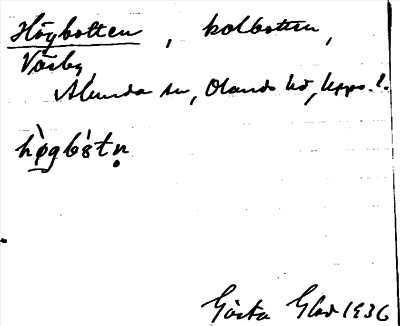 Högbotten, kolbotten,
Väsby
Alunda sn, Olands hd, Uppl.
hø̀gbót n̥
Gösta Glad 1936